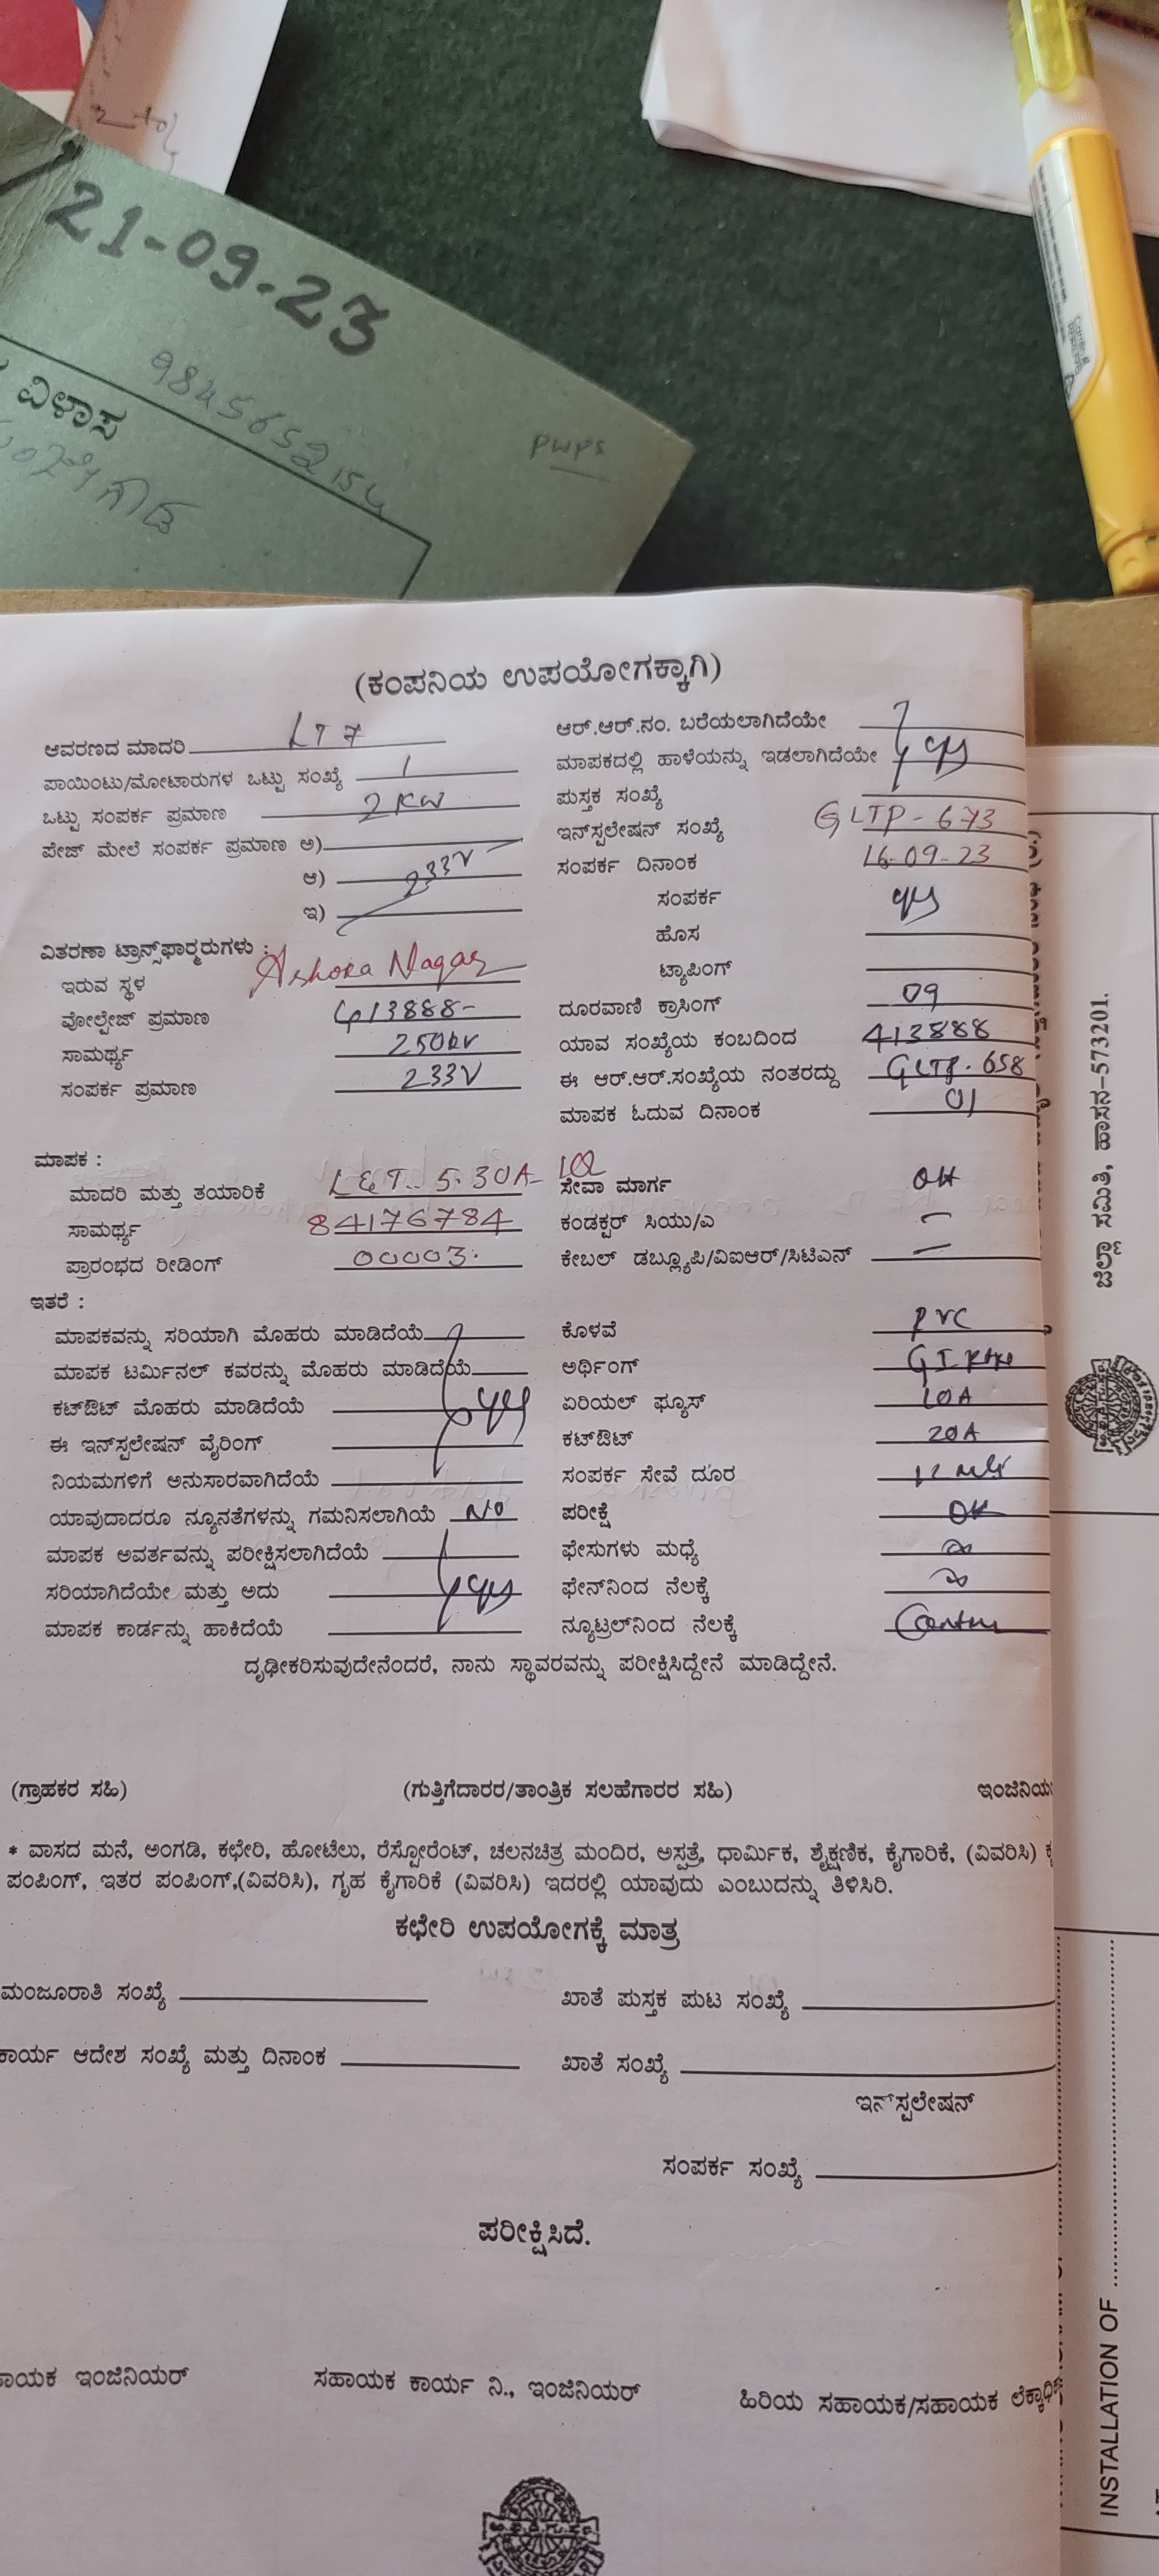 21-09.23
ವಿಳಾಸ
PWPS
(ಕಂಪನಿಯ ಉಪಯೋಗಕ್ಕಾಗಿ)
ಆವರಣದ ಮಾದರಿ LT 7
ಪಾಯಿಂಟು/ಮೋಟಾರುಗಳ ಒಟ್ಟು ಸಂಖ್ಯೆ 1
ಒಟ್ಟು ಸಂಪರ್ಕ ಪ್ರಮಾಣ 2 KW
ಪೇಜ್ ಮೇಲೆ ಸಂಪರ್ಕ ಪ್ರಮಾಣ ಅ)
ಆ) 233V
ಇ)
ವಿತರಣಾ ಟ್ರಾನ್ಸ್‌ಫಾರ್‍ಮರುಗಳು :
ಇರುವ ಸ್ಥಳ Ashoka Nagar
ವೋಲ್ಟೇಜ್ ಪ್ರಮಾಣ 413888-
ಸಾಮರ್ಥ್ಯ 250kv
ಸಂಪರ್ಕ ಪ್ರಮಾಣ 233V
ಆರ್.ಆರ್.ನಂ. ಬರೆಯಲಾಗಿದೆಯೇ
ಮಾಪಕದಲ್ಲಿ ಹಾಳೆಯನ್ನು ಇಡಲಾಗಿದೆಯೇ yes
ಪುಸ್ತಕ ಸಂಖ್ಯೆ
ಇನ್‌ಸ್ಟಲೇಷನ್ ಸಂಖ್ಯೆ GLTP-673
ಸಂಪರ್ಕ ದಿನಾಂಕ 16-09-23
ಸಂಪರ್ಕ yes
ಹೊಸ
ಟ್ಯಾಪಿಂಗ್
ದೂರವಾಣಿ ಕ್ರಾಸಿಂಗ್ 09
ಯಾವ ಸಂಖ್ಯೆಯ ಕಂಬದಿಂದ 413888
ಈ ಆರ್.ಆರ್.ಸಂಖ್ಯೆಯ ನಂತರದ್ದು GLTP-658
ಮಾಪಕ ಓದುವ ದಿನಾಂಕ 01
ಮಾಪಕ :
ಮಾದರಿ ಮತ್ತು ತಯಾರಿಕೆ L&T. 5-30A-
ಸಾಮರ್ಥ್ಯ 84176784
ಪ್ರಾರಂಭದ ರೀಡಿಂಗ್ 00003.
ಸೇವಾ ಮಾರ್ಗ OH
ಕಂಡಕ್ಟರ್ ಸಿಯು/ಎ –
ಕೇಬಲ್ ಡಬ್ಲ್ಯೂಪಿ/ವಿಐಆರ್/ಸಿಟಿಎನ್ –
ಇತರೆ :
ಮಾಪಕವನ್ನು ಸರಿಯಾಗಿ ಮೊಹರು ಮಾಡಿದೆಯೆ
ಮಾಪಕ ಟರ್ಮಿನಲ್ ಕವರನ್ನು ಮೊಹರು ಮಾಡಿದೆಯೆ
ಕಟ್‌ಔಟ್ ಮೊಹರು ಮಾಡಿದೆಯೆ yes
ಈ ಇನ್‌ಸ್ಟಲೇಷನ್ ವೈರಿಂಗ್
ನಿಯಮಗಳಿಗೆ ಅನುಸಾರವಾಗಿದೆಯೆ
ಯಾವುದಾದರೂ ನ್ಯೂನತೆಗಳನ್ನು ಗಮನಿಸಲಾಗಿಯೆ NO
ಮಾಪಕ ಅವರ್ತವನ್ನು ಪರೀಕ್ಷಿಸಲಾಗಿದೆಯೆ
ಸರಿಯಾಗಿದೆಯೇ ಮತ್ತು ಅದು yes
ಮಾಪಕ ಕಾರ್ಡನ್ನು ಹಾಕಿದೆಯೆ
ಕೊಳವೆ PVC
ಅರ್ಥಿಂಗ್ GI
ಏರಿಯಲ್ ಫ್ಯೂಸ್ 10A
ಕಟ್‌ಔಟ್ 20A
ಸಂಪರ್ಕ ಸೇವೆ ದೂರ 12
ಪರೀಕ್ಷೆ OK
ಫೇಸುಗಳು ಮಧ್ಯೆ ∞
ಫೇನ್‌ನಿಂದ ನೆಲಕ್ಕೆ ∞
ನ್ಯೂಟ್ರಲ್‌ನಿಂದ ನೆಲಕ್ಕೆ
ದೃಢೀಕರಿಸುವುದೇನೆಂದರೆ, ನಾನು ಸ್ಥಾವರವನ್ನು ಪರೀಕ್ಷಿಸಿದ್ದೇನೆ ಮಾಡಿದ್ದೇನೆ.
(ಗ್ರಾಹಕರ ಸಹಿ) (ಗುತ್ತಿಗೆದಾರರ/ತಾಂತ್ರಿಕ ಸಲಹೆಗಾರರ ಸಹಿ) ಇಂಜಿನಿಯ
* ವಾಸದ ಮನೆ, ಅಂಗಡಿ, ಕಛೇರಿ, ಹೋಟೆಲು, ರೆಸ್ಟೋರೆಂಟ್, ಚಲನಚಿತ್ರ ಮಂದಿರ, ಅಸ್ಪತ್ರೆ, ಧಾರ್ಮಿಕ, ಶೈಕ್ಷಣಿಕ, ಕೈಗಾರಿಕೆ, (ವಿವರಿಸಿ)
ಪಂಪಿಂಗ್, ಇತರ ಪಂಪಿಂಗ್,(ವಿವರಿಸಿ), ಗೃಹ ಕೈಗಾರಿಕೆ (ವಿವರಿಸಿ) ಇದರಲ್ಲಿ ಯಾವುದು ಎಂಬುದನ್ನು ತಿಳಿಸಿರಿ.
ಕಛೇರಿ ಉಪಯೋಗಕ್ಕೆ ಮಾತ್ರ
ಮಂಜೂರಾತಿ ಸಂಖ್ಯೆ ಖಾತೆ ಪುಸ್ತಕ ಪುಟ ಸಂಖ್ಯೆ
ಕಾರ್ಯ ಆದೇಶ ಸಂಖ್ಯೆ ಮತ್ತು ದಿನಾಂಕ ಖಾತೆ ಸಂಖ್ಯೆ
ಇನ್‌ಸ್ಟಲೇಷನ್
ಸಂಪರ್ಕ ಸಂಖ್ಯೆ
ಪರೀಕ್ಷಿಸಿದೆ.
ಾಯಕ ಇಂಜಿನಿಯರ್ ಸಹಾಯಕ ಕಾರ್ಯ ನಿ., ಇಂಜಿನಿಯರ್ ಹಿರಿಯ ಸಹಾಯಕ/ಸಹಾಯಕ ಲೆಕ್ಕಾಧಿ
ಜಿಲ್ಲಾ ಸಮಿತಿ, ಹಾಸನ-573201.
INSTALLATION OF